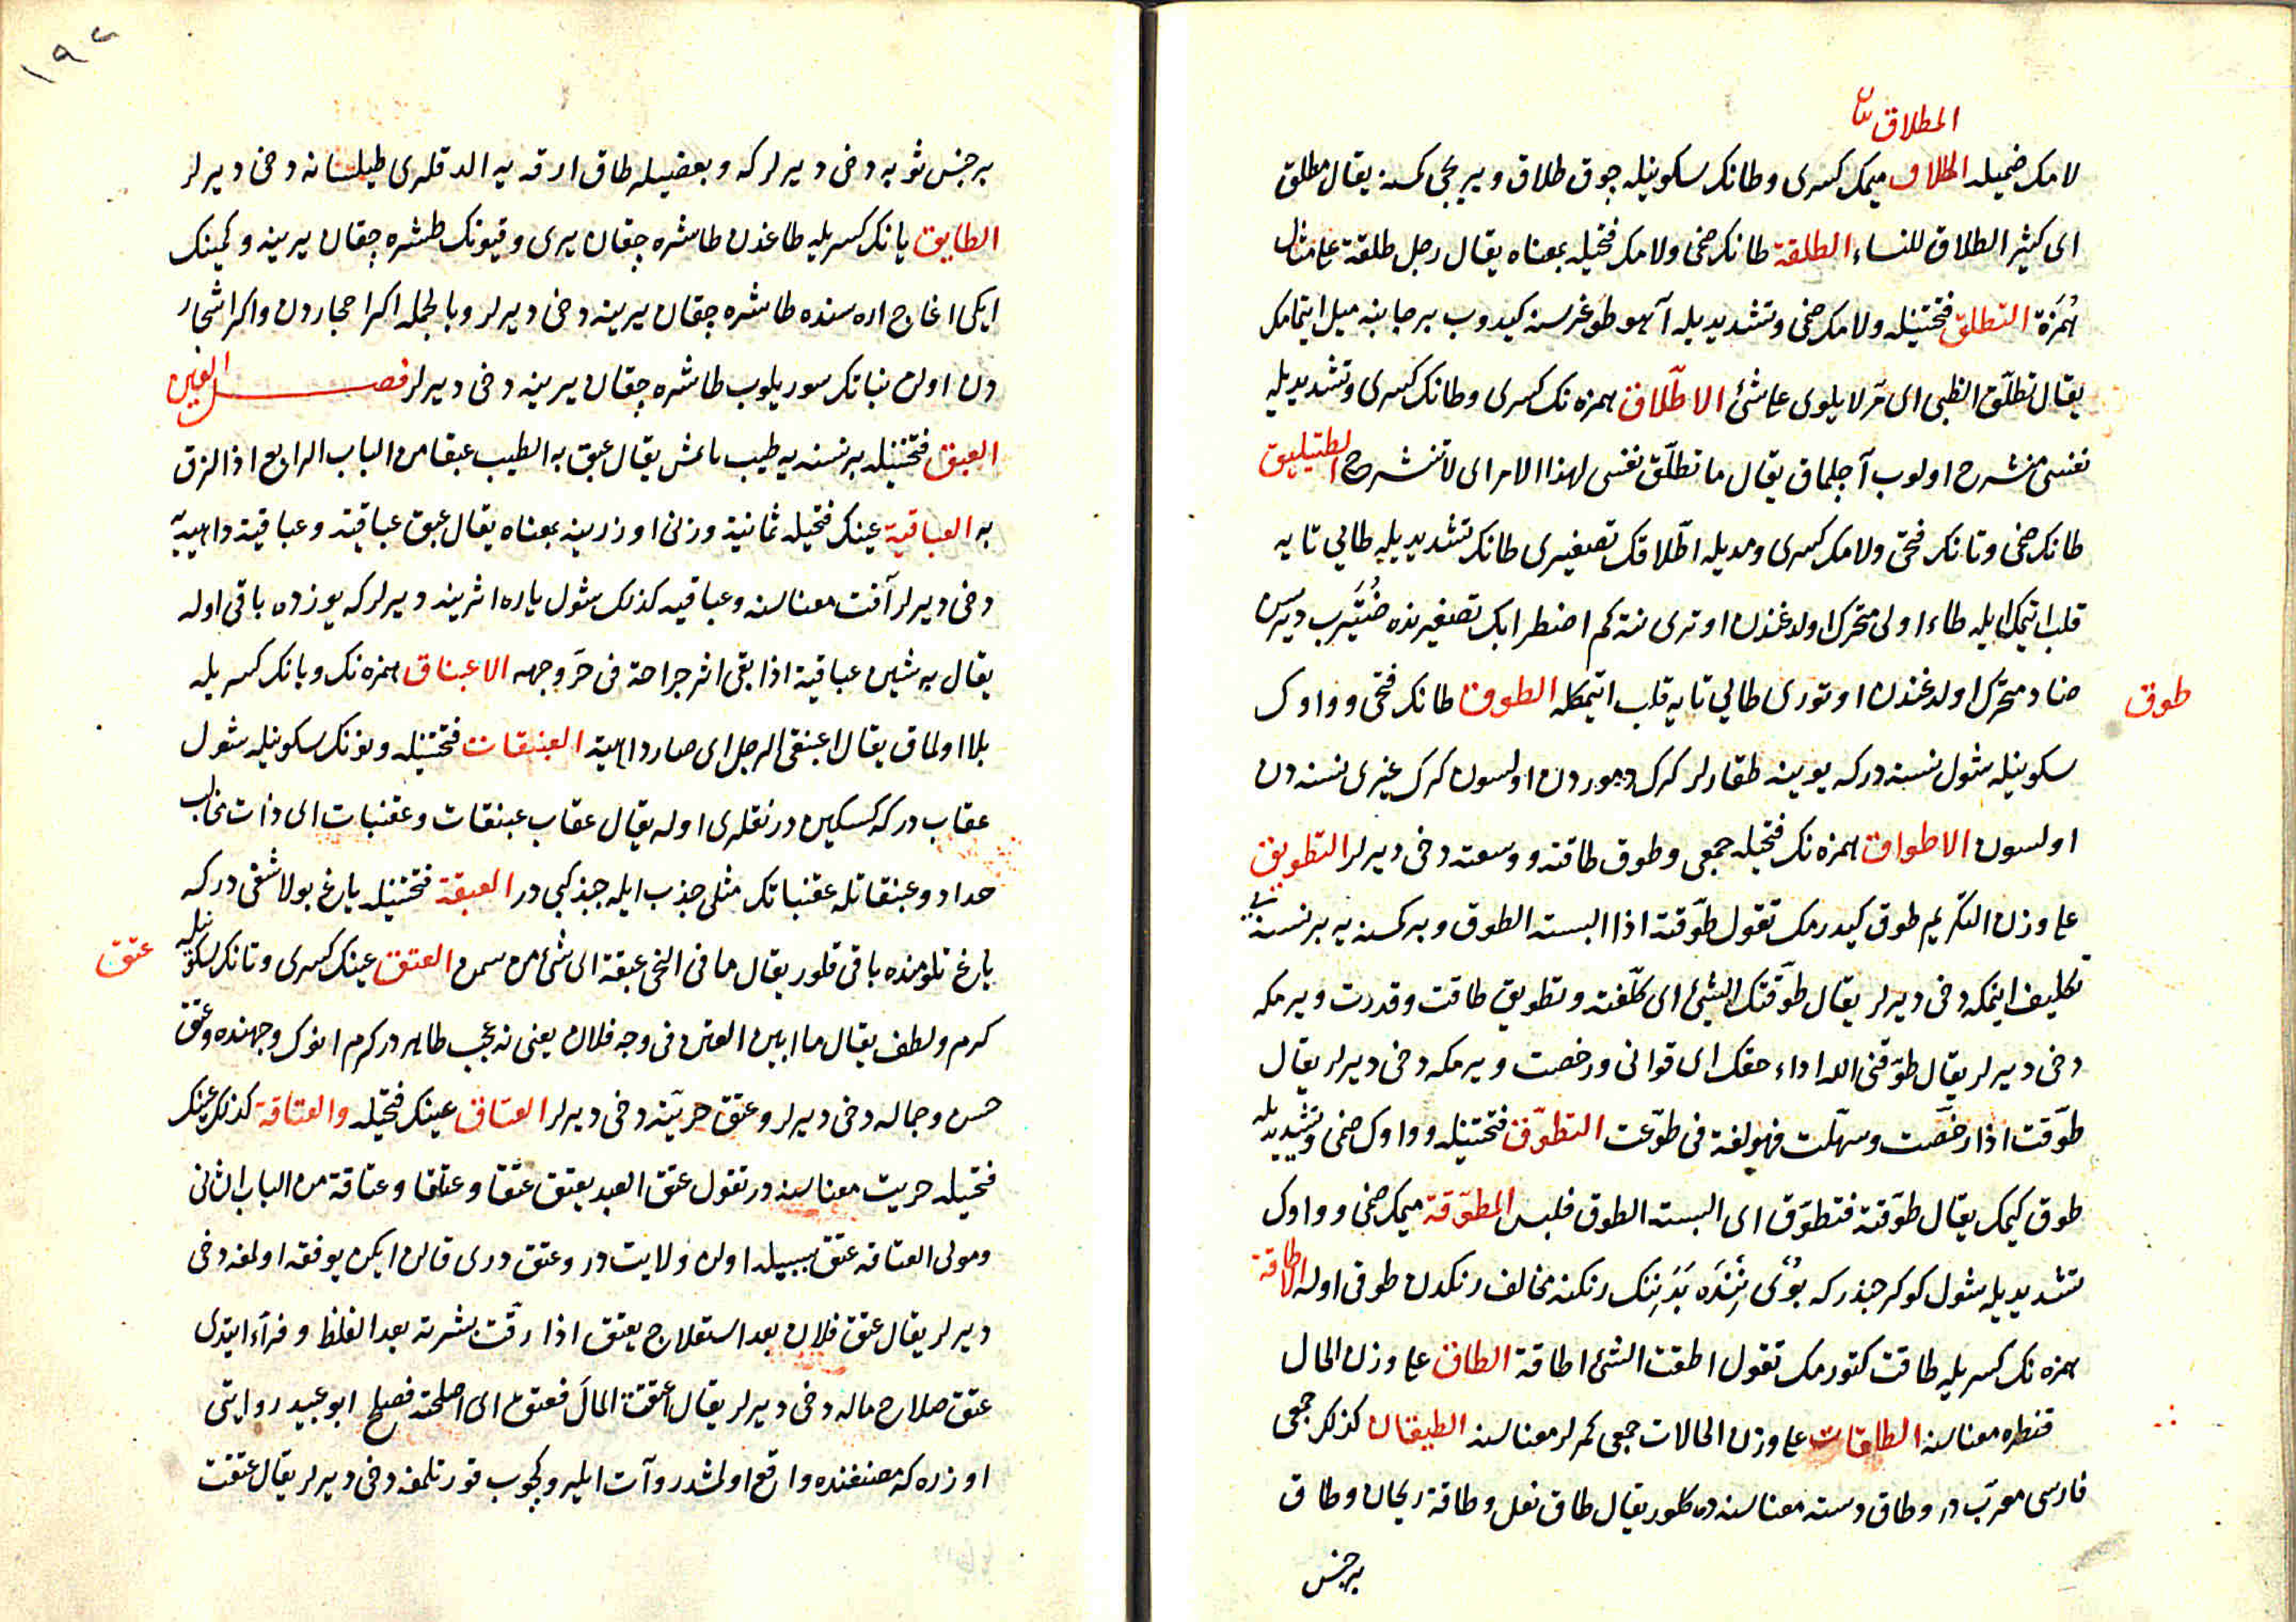 المطلاق
لامك ضميله المطلاق ميمك كسرى وطانك سكونيله چوق طلاق ويريجى كمسنه يقال مطلق
اى كثير الطلاق للنساء الطلقة طانك ضمى ولامك فتحيله بمعناه يقال رجل طلقة على مثال
هُمَزَة التطلق فتحتينله ولامك ضمى وتشديديله آهو طوغرسنه كيدوب بر جانبنه ميل ايتمامك
يقال تطلّق الظبى اى مرّ لا يلوى على شئ الاطّلاق همزه نك كسرى وطانك كسرى وتشديديله
نفس منشرح اولوب آچلماق يقال ما تطلّق نفسى لهذا الامر اى لا تنشرح الطتيليق
طانك ضمى وتانك فتحى ولامك كسرى ومديله اطّلاقك تصغيرى طانك تشديديله طايى تايه
قلب ايتمك ايله طاء اولى متحرك اولدغندن اوترى نته كم اضطرابك تصغيرنده ضُتَيرب ديرسن
ضاد متحرك اولدغندن اوتورى طايى تايه قلب ايتمكله الطوق طانك فتحى وواوك
طوق
سكونيله شول نسنه دركه بوينه طقارلر كرك دموردن اولسون كرك غيرى نسنه دن
اولسون الاطواق همزه نك فتحيله جمعى وطوق طاقته ووسعته دخى ديرلر التطويق
على وزن التكريم طوق كيدرمك تقول طوّقته اذا البسته الطوق وبر كمسنه يه بر نسنه يى
تكليف ايتمكه دخى ديرلر يقال طوّقتك الشئ اى كلّفته وتطويق طاقت وقدرت ويرمكه
دخى ديرلر يقال طوّقنى الله اداء حقك اى قوانى ورخصت ويرمكه دخى ديرلر يقال
طوّقت اذا رخّصت وسهّلت فهو لغة فى طوّعت التطوّق فتحتينله وواوك ضمى وتشديديله
طوق كيمك يقال طوّقته فتطوّق اى البسته الطوق فلبس المطوّقة ميمك ضمى وواوك
تشديديله شول كوكرجندركه بوينده بدنينك رنكنه مخالف رنكدن طوقى اوله الاطاقة
همزه نك كسريله طاقت كتورمك تقول اطقت الشئ اطاقة الطاق على وزن الحال
قنطره معناسنه الطاقات على وزن الحالات جمعى كمرلر معناسنه الطيقان كذلك جمعى
فارسى معرّب در وطاق دسته معناسنه ده كلور يقال طاق نعل وطاقة ريحان وطاق
بر جنس
١٩٢
بر جنس ثوبه دخى ديرلركه وبعضيله طاق ارقه يه الدقلرى طيلسانه دخى ديرلر
الطايق يانك كسريله طاغدن طاشره چقان يرى وقيونك طشره چقان يرينه وكمينك
ايكى اغاج اره سنده طاشره چقان يرينه دخى ديرلر وبالجمله اكر احجاردن واكر اشجار
دن اولن بنانك سوريلوب طاشره چقان يرينه دخى ديرلر فصل العين
العبق فتحتينله بر نسنه يه طيب يقال عبق به الطيب عبقا من الباب الرابع اذا لزق
به العباقية عينك فتحيله ثمانية وزنى اوزرينه بمعناه يقال عبق عباقية وعباقية داهيه
دخى ديرلر آفت معناسنه وعباقيه كذلك شول ياره اثرينه ديرلركه يوزده باقى اوله
يقال به شين عباقية اذا بقى اثر جراحة فى حرّ وجهه الاعبناق همزه نك وبانك كسريله
بلا اولماق يقال اعبنقى الرجل اى صار داهية العبنقات فتحتينله ونونك سكونيله شول
عقاب دركه كسكين درنقلرى اوله يقال عقاب عبنقات وعقنبات اى ذات مخالب
حداد وعبنقاتله عقنباتك مثلى جذب ايله جبذ كبى در العبقة فتحتينله ياغ بولاشقى دركه
ياغ تلومنده باقى قلور يقال ما فى النحى عبقة اى شئ من سمن العتق عينك كسرى وتانك سكونيله
عتق
كرم ولطف يقال ما ابين العتق فى وجه فلان يعنى نه عجب ظاهر در كرم انوك وجهنده وعتق
حسن وجماله دخى ديرلر وعتق حريّته دخى ديرلر العتاق عينك فتحيله والعتاقة كذلك عينك
فتحيله حريت معناسنه در تقول عتق العبد يعتق عتقا وعتاقا وعتاقة من الباب الثانى
ومولى العتاقه عتق سببيله اولن ولايت در وعتق درى قالن ايكن يوفقه اولمغه دخى
ديرلر يقال عتق فلان بعد استعلاج يعتق اذا رقّت بشرته بعد الغلظ وفرّاء ايتدى
عتق صلاح ماله دخى ديرلر يقال عتقت المال فعتق اى اصلحته فصلح ابو عبيد روايتى
اوزره كه مصنفنده واقع اولمشدر وآت ايلير وكچوب قورتلمغه دخى ديرلر يقال عتقت